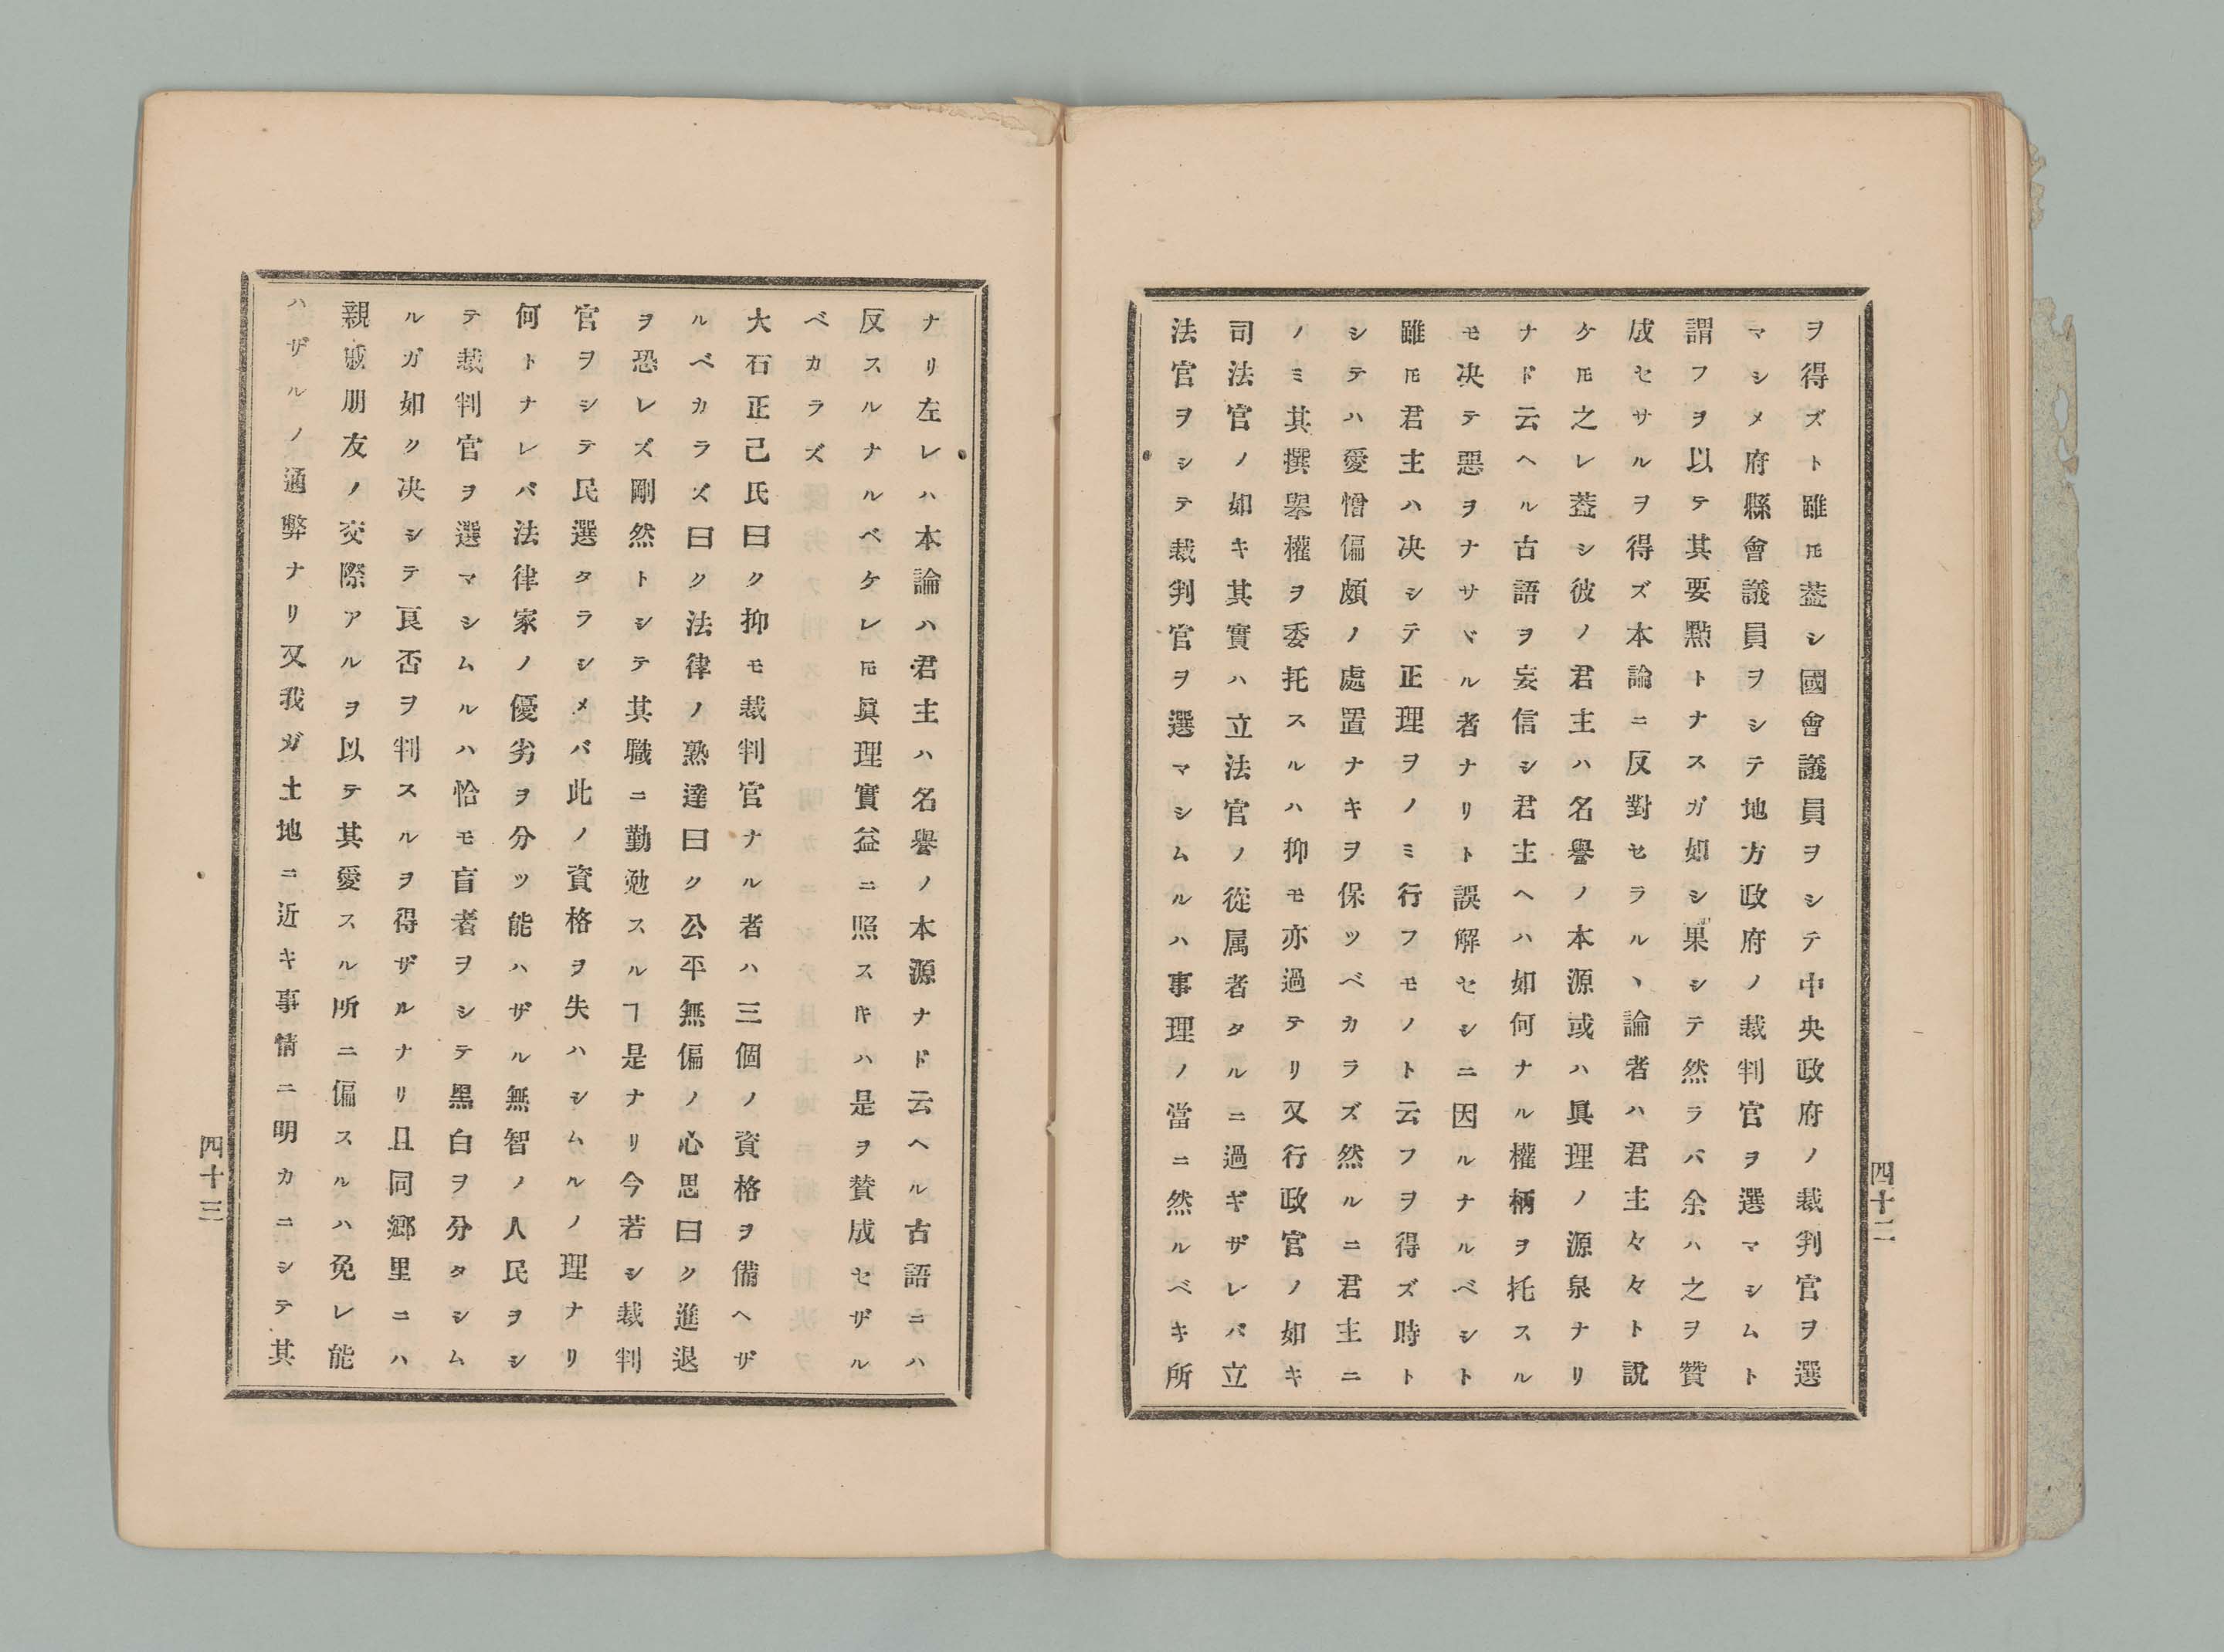 ヲ得ズト雖𪜈葢シ國會議員ヲシテ中央政府ノ裁判官ヲ選
マシメ府縣會議員ヲシテ地方政府ノ裁判官ヲ選マシムト
謂フヲ以テ其要點トナスガ如シ果シテ然ラバ余ハ之ヲ贊
成セサルヲ得ズ本論ニ反對セラルヽ論者ハ君主々々ト說
ケ𪜈之レ葢シ彼ノ君主ハ名譽ノ本源或ハ眞理ノ源泉ナリ
ナド云ヘル古語ヲ妄信シ君主ヘハ如何ナル權柄ヲ托スル
モ决テ惡ヲナサヾル者ナリト誤解セシニ因ルナルベシト
雖𪜈君主ハ决シテ正理ヲノミ行フモノト云フヲ得ズ時ト
シテハ愛憎偏頗ノ處置ナキヲ保ツベカラズ然ルニ君主ニ
ノミ其撰擧權ヲ委托スルハ抑モ亦過テリ又行政官ノ如キ
司法官ノ如キ其實ハ立法官ノ從属者タルニ過ギザレバ立
法官ヲシテ裁判官ヲ選マシムルハ事理ノ當ニ然ルベキ所
四十二
ナリ左レハ本論ハ君主ハ名譽ノ本源ナド云ヘル古語ニハ
反スルナルベケレ𪜈眞理實益ニ照スキハ是ヲ賛成セザル
ベカラズ
大石正己氏曰ク抑モ裁判官ナル者ハ三個ノ資格ヲ備ヘザ
ルベカラズ曰ク法律ノ熟達曰ク公平無偏ノ心思曰ク進退
ヲ恐レズ剛然トシテ其職ニ勤勉スルヿ是ナリ今若シ裁判
官ヲシテ民選タラシメバ此ノ資格ヲ失ハシムルノ理ナリ
何トナレバ法律家ノ優劣ヲ分ツ能ハザル無智ノ人民ヲシ
テ裁判官ヲ選マシムルハ恰モ盲者ヲシテ黑白ヲ分タシム
ルガ如ク决シテ良否ヲ判スルヲ得ザルナリ且同鄉里ニハ
親戚朋友ノ交際アルヲ以テ其愛スル所ニ偏スルハ免レ能
ハザルノ通弊ナリ又我ガ土地ニ近キ事情ニ明カニシテ其
四十三